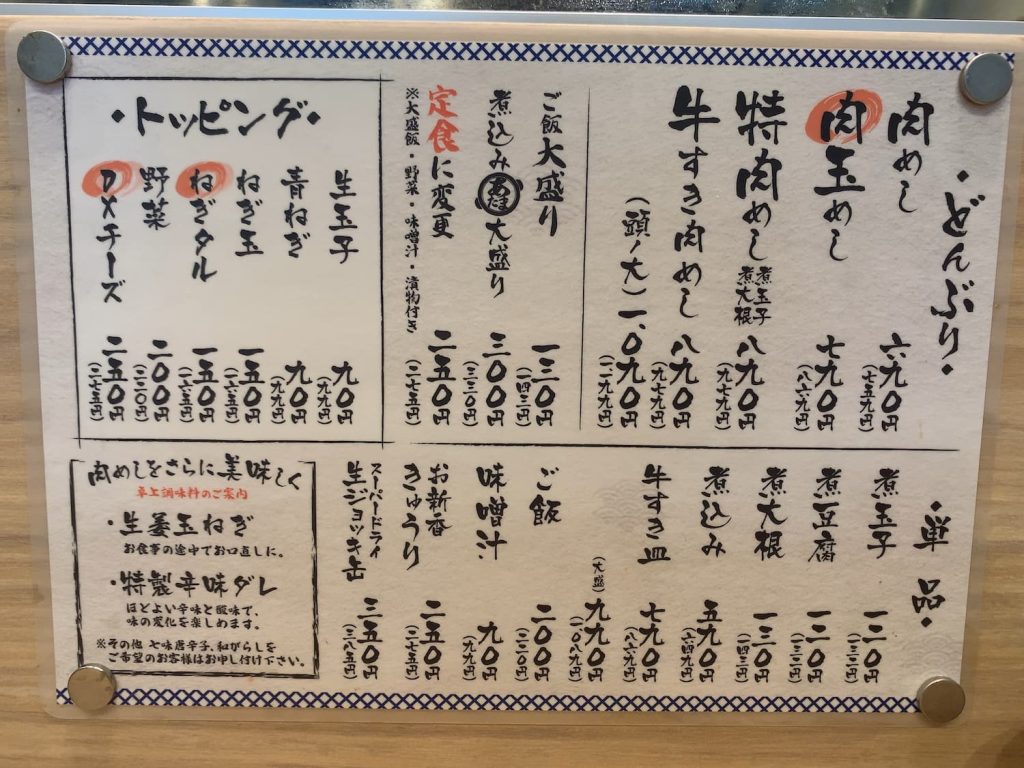 ・どんぶり・
肉めし 六九〇円
(七五九円)
肉玉めし 七九〇円
(八六九円)
特肉めし 煮玉子 煮大根 八九〇円
(九七九円)
牛すき肉めし 八九〇円
(九七九円)
(頭ノ大) 一、〇九〇円
(一一九九円)
ご飯大盛り 一三〇円
(一四三円)
煮込みあたま大盛り 三〇〇円
(三三〇円)
定食に変更 二五〇円
(二七五円)
※大盛飯・野菜・味噌汁・漬物付き
・トッピング・
生玉子 九〇円
(九九円)
青ねぎ 九〇円
(九九円)
ねぎ玉 一五〇円
(一六五円)
ねぎダル 一五〇円
(一六五円)
野菜 二〇〇円
(二二〇円)
DXチーズ 二五〇円
(二七五円)
・単品・
煮玉子 一二〇円
(一三二円)
煮豆腐 一二〇円
(一三二円)
煮大根 一三〇円
(一四三円)
煮込み 五九〇円
(六四九円)
牛すき皿 七九〇円
(八六九円)
(大盛) 九九〇円
(一〇八九円)
ご飯 二〇〇円
(二二〇円)
味噌汁 九〇円
(九九円)
お新香
きゅうり 二五〇円
(二七五円)
スーパードライ
生ジョッキ缶 三五〇円
(三八五円)
肉めしをさらに美味しく
卓上調味料のご案内
・生姜玉ねぎ
お食事の途中でお口直しに。
・特製辛味ダレ
ほどよい辛味と酸味で、
味の変化を楽しめます。
※その他 七味唐辛子、和がらしを
ご希望のお客様はお申し付け下さい。